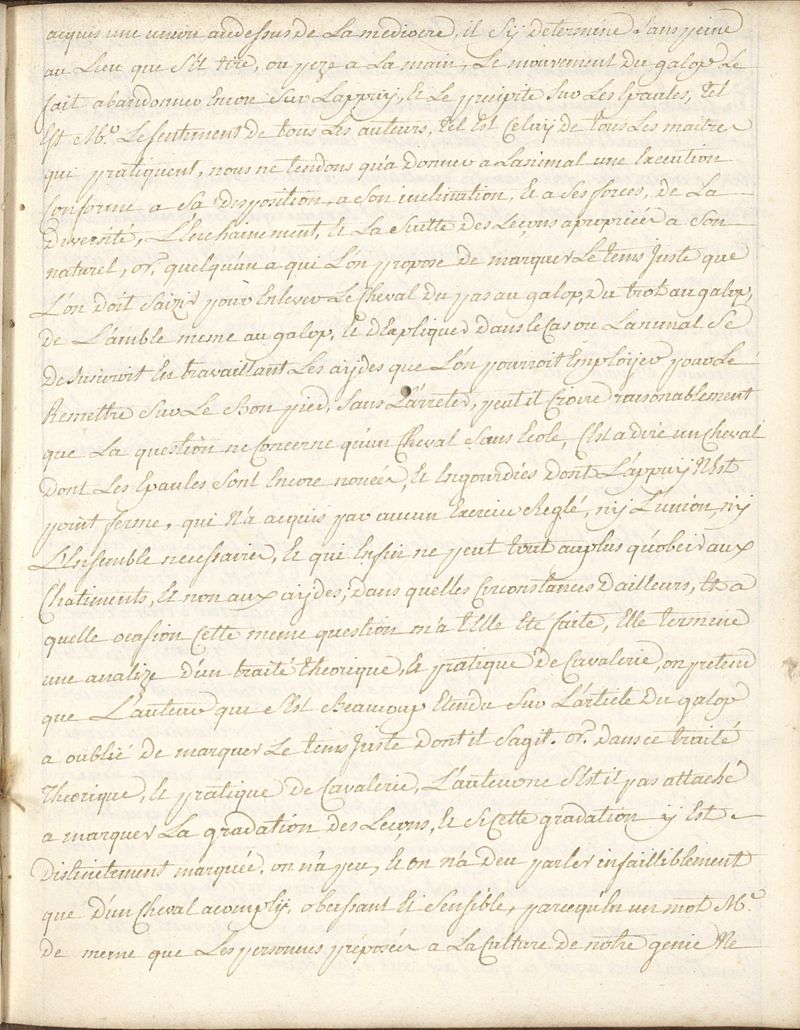 acquis une union audessus de La mediocre, il Sij determine Sans peine
au Lieu que S'il tire, ou peze a La main, Le mouvement du galop Le
fait abandonner Encore Sur L'appuij, Et Le precipite Sur Les Epaules, tel
Est Mr. Le sentiment de tous Les auteurs, tel Est Celuij de tous Les maitres
qui pratiquent, nous ne tendons qu'a donner a Lanimal une Execution
Conforme a Sa disposition, a Son inclination, Et a Ses forces, de La
Diversité, L'Enchainement, Et La Suitte des Leçons apropriées a Son
naturel, or, quelqu'un a qui L'on propose de marquer Le tems Juste que
L'on doit Saizir pour Enlever Le Cheval du pas au galop, du trot au galop,
de L'amble meme au galop, Et d'Expliquer dans le Cas ou Lanimal Se
desuniroit En travaillant Les aijdes que L'on pourroit Employer pour Le
Remettre Sur Le Bon pied, Sans L'arreter, peut il Croire raisonablement
que La question ne Concerne qu'un Cheval Sans Ecole, C'est a dire un Cheval
dont Les Epaules Sont Encore nouées, Et Engourdies dont L'appuij N'Est
point ferme, qui N'a acquis par aucun Exercice Reglé, nij L'union, nij
L'Ensemble necessaires, Et qui Enfin ne peut tout auplus qu'obeir aux
Chatiments, Et non aux aijdes, dans quelles Circonstances d'ailleurs, Et a
quelle ocasion Cette meme question m'a t'Elle Eté faite, Elle termine
une analize d'un traité theorique, Et pratique de Cavalerie, on pretend
que L'auteur qui S'Est Beaucoup Etendu Sur L'article du galop
a oublié de marquer Le tems Juste dont il Sagit. or, dans ce traité
theorique, Et pratique de Cavalerie, L'auteur ne S'Est il pas attaché
a marquer La gradation des Leçons, Et Si Cette gradation ij Est
Distinctement marquée, on n'a peu, Et on n'a deu parler infailliblement
que d'un Cheval acomplij, obeissant Et Sensible, parcequ'En un mot Mr.
de meme que Les personnes préposées a La Culture de notre genie Ne